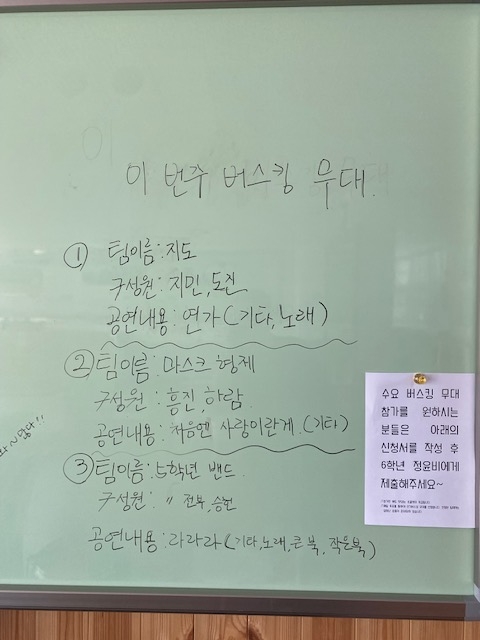 이 번주 버스킹 무대.
① 팀이름: 지도
구성원: 지민, 도진
공연내용: 연가(기타,노래)
② 팀이름: 마스크 형제
구성원: 흥진, 하람
공연내용: 처음엔 사랑이란게. (기타)
③ 팀이름: 5학년 밴드
구성원: " 전부, 승현
공연내용: 라라라(기타,노래,큰북, 작은북)
수요 버스킹 무대
참가를 원하시는
분들은 아래의
신청서를 작성 후
6학년 정윤비에게
제출해주세요~